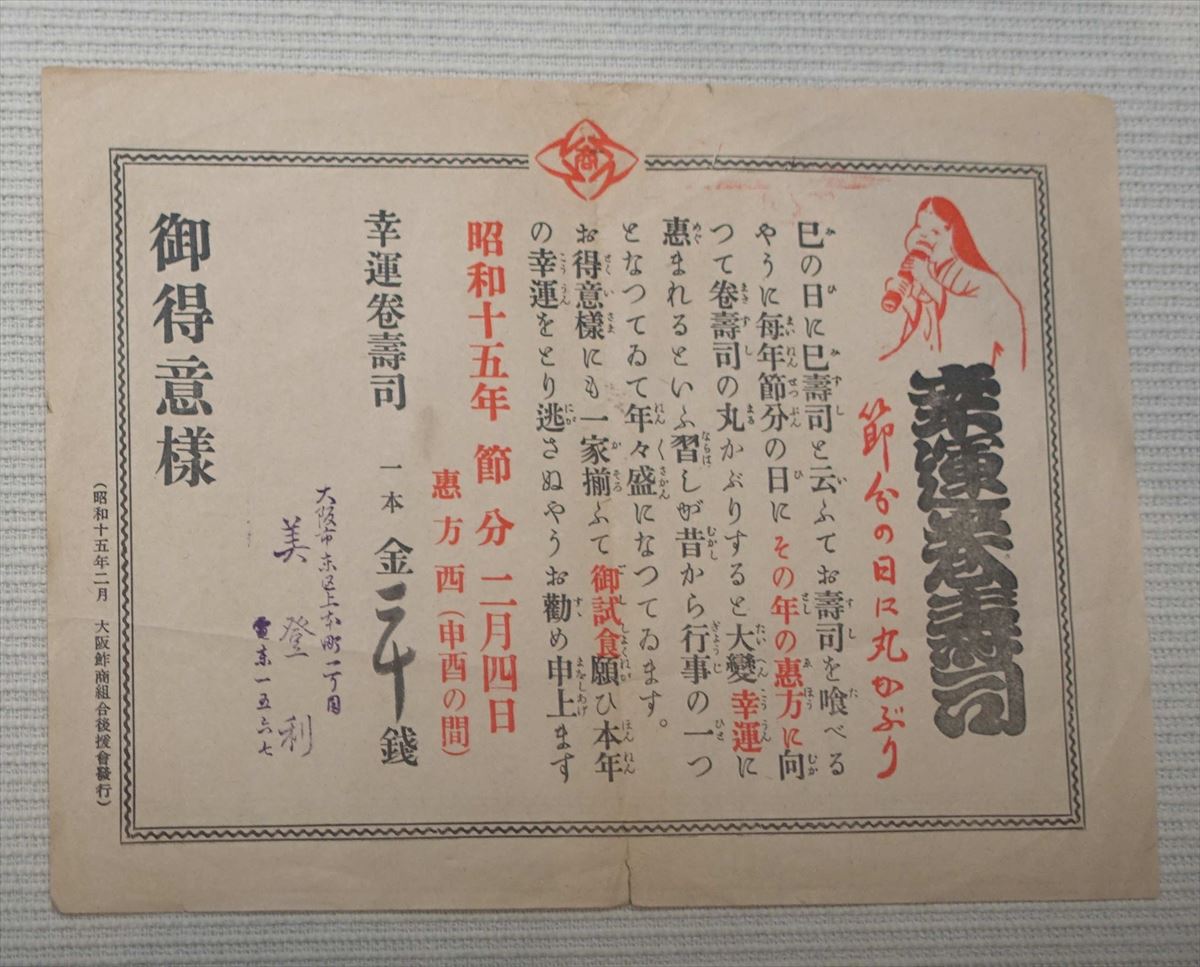 幸運卷壽司
節分の日に丸かぶり
巳の日に巳壽司と云ふてお壽司を喰べる
やうに每年節分の日にその年の惠方に向
つて卷壽司の丸かぶりすると大變幸運に
惠まれるといふ習しが昔から行事の一つ
となつてゐて年々盛になつてゐます。
お得意樣にも一家揃ふて御試食願ひ本年
の幸運をとり逃さぬやうお勸め申上ます
昭和十五年 節分 二月四日
惠方 西(申酉の間)
幸運卷壽司 一本 金二十錢
大阪市東区上本町一丁目
美登利
電東一五六七
御得意樣
(昭和十五年二月 大阪鮓商組合後援會發行)
商